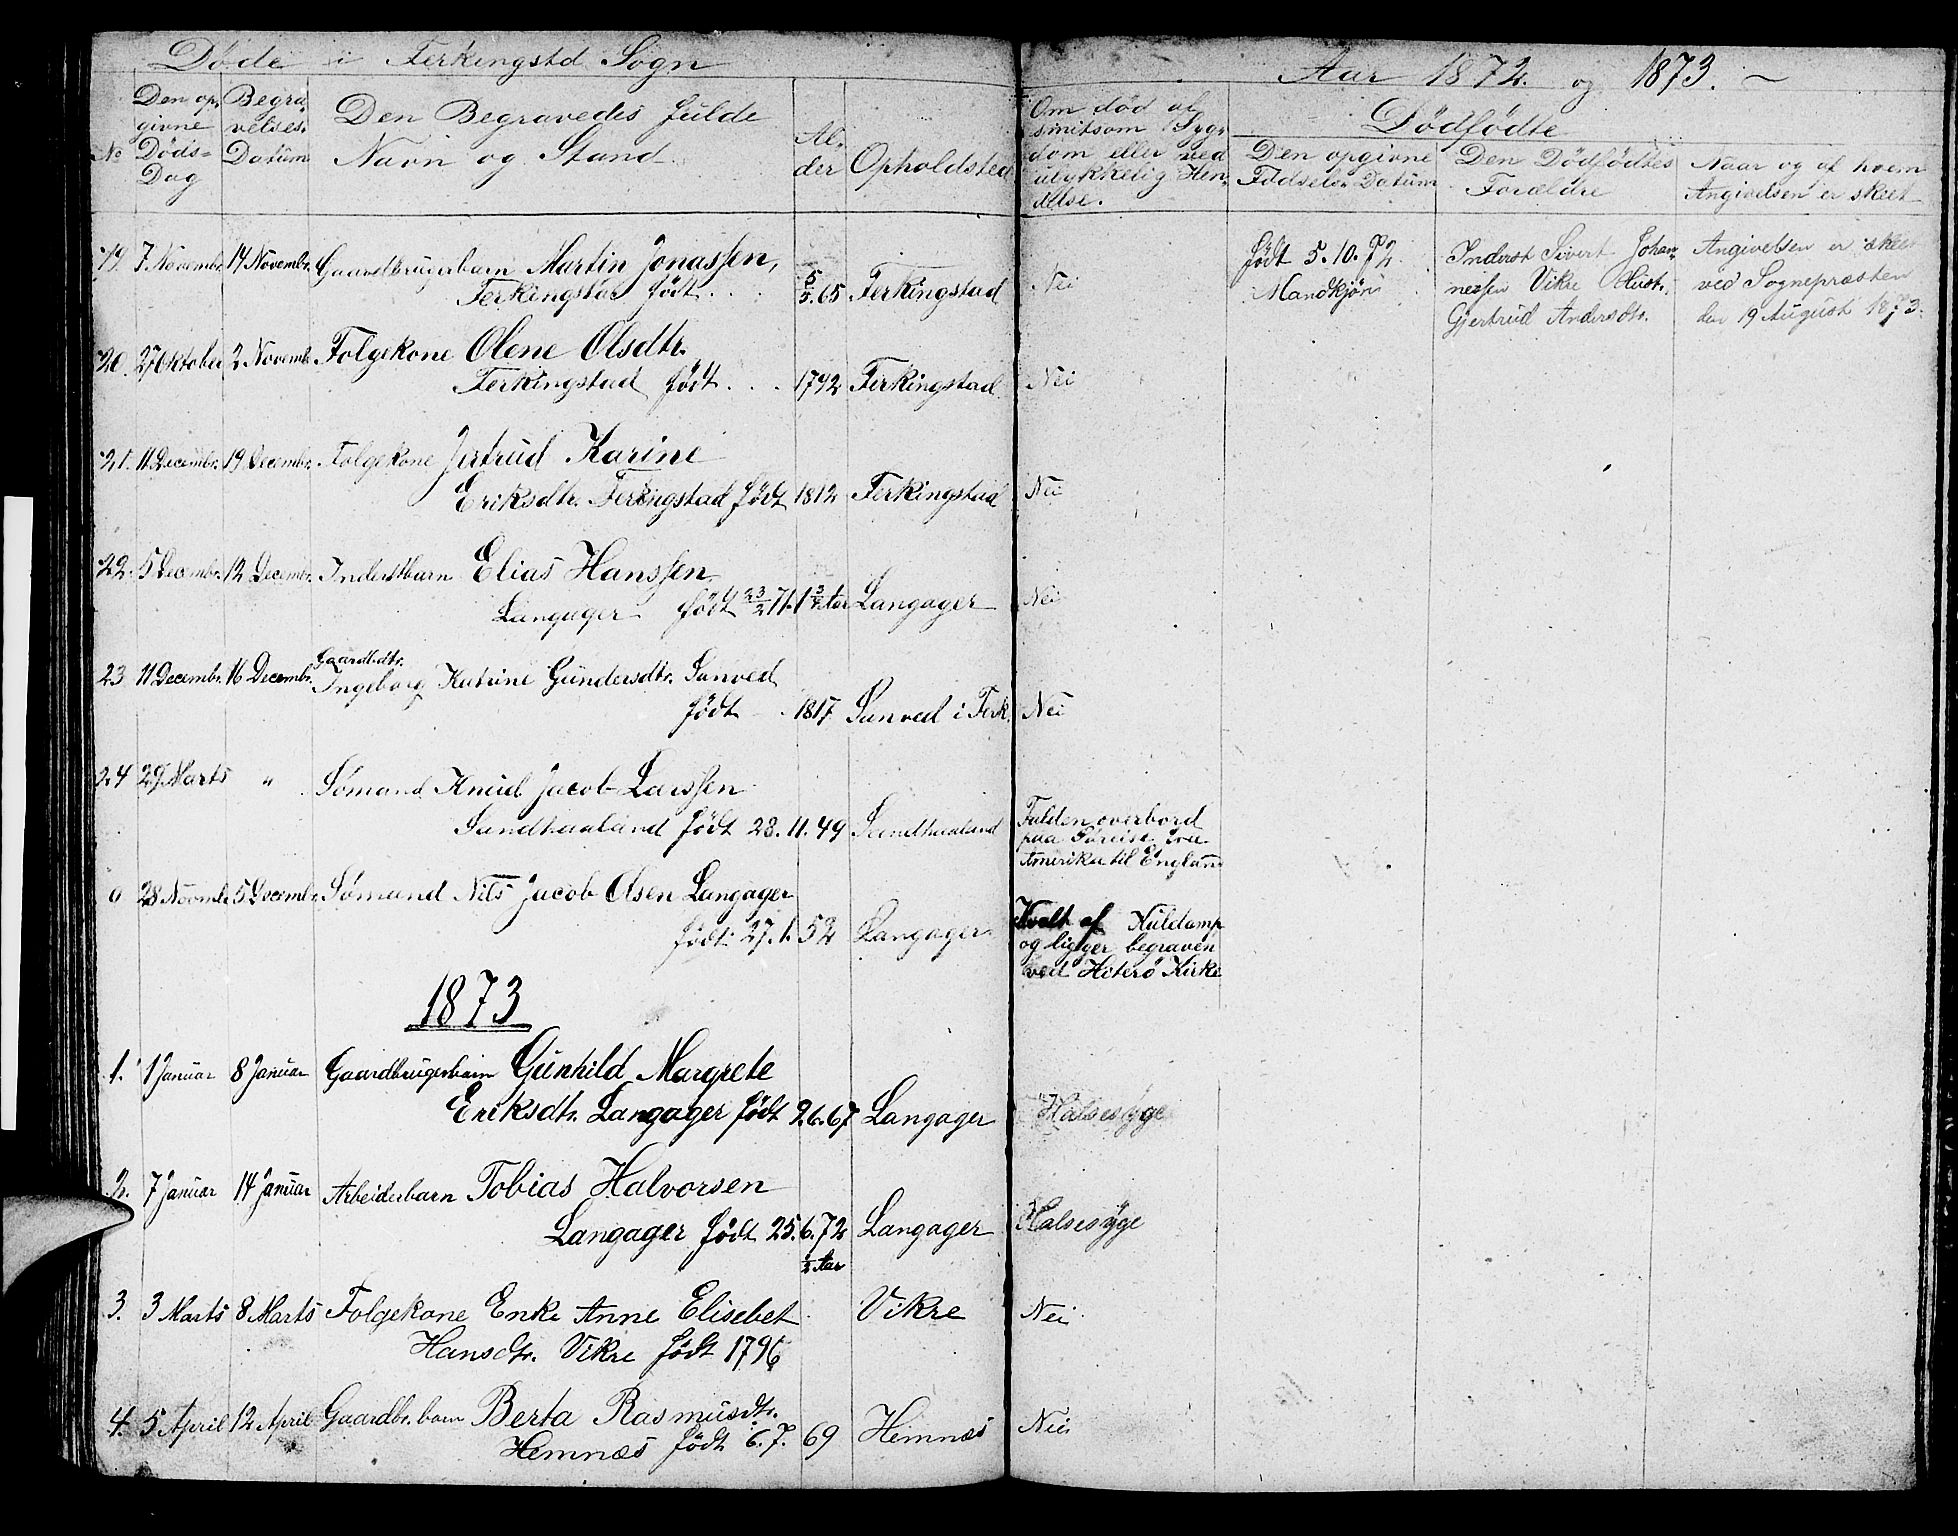 Døde i Ferkingstd Sogn
Aar 1872 og 1873.
No
Den op-
givne
Døds-
Dag
Begra-
velses-
Datum
Den Begravedes fulde
Navn og Stand
Al-
der
Opholdsted
Om død af
smitsom Syg-
dom eller ved
ulykkelig Hen-
delse.
Dødfødte
Den opgivne
Fødsels-Datum
Den Dødfødtes
Forældre
Naar og af hvem
Angivelsen er skeet
19. 7 Novembr. 14 Novembr. Gaardbrugerbarn Martin Jonassen,
Ferkingstad født . . 5/5. 65 Ferkingstad Nei
født 5. 10. 72
Mandkjøn
Inderst Sivert Johan-
nessen Vikre Hust.
Gjertrud Andersdtr.
Angivelsen er skeet
ved Sognepræsten
den 19 August 1873.
20. 27 Oktober 2 Novemb. Folgekone Olene Olsdtr.
Ferkingstad født . . . 1792 Ferkingstad Nei
21. 11 Decembr. 19 Decembr. Folgekone Jertrud Karine
Eriksdtr. Ferkingstad født 1812 Ferkingstad Nei
22. 5 Decembr. 12 Decembr. Inderstbarn Elias Hanssen
Langager født 23/2 71. 1 3/4 Aar Langager Nei
23 11 Decembr. 16 Decembr. Gaardbdtr.
Ingeborg Katrine Gundersdtr. Sanved
født . 1817 Sanved i Ferk. Nei
24 29 Marts " Sømand Knud Jacob Larssen
Sandhaaland født 23. 11. 49 Sandhaaland
Falden overbord
paa Søreise fra
Amerika til England
0 28 Novmbr 5 Decembr. Sømand Nils Jacob Olsen Langager
født 27. 1. 52 Langager
Kvalt af Kuldamp
og ligger begraven
ved Hiterø Kirke
1873
1. 1 Januar 8 Januar Gaardbrugerbarn Gunhild Margrete
Eriksdtr. Langager født 2. 6. 67 Langager Halsesyge
2. 7 Januar 14 Januar Arbeiderbarn Tobias Halvorsen
Langager født 25. 6. 72 Langager Halsesyge
1/2 Aar
3. 3 Marts 8 Marts Folgekone Enke Anne Elisebet Vikre Nei
Hansdtr. Vikre født 1796
4. 5 April 12 April Gaardbr.barn Berta Rasmusdtr.
Hemnæs født 6. 7. 69 Hemnæs Nei